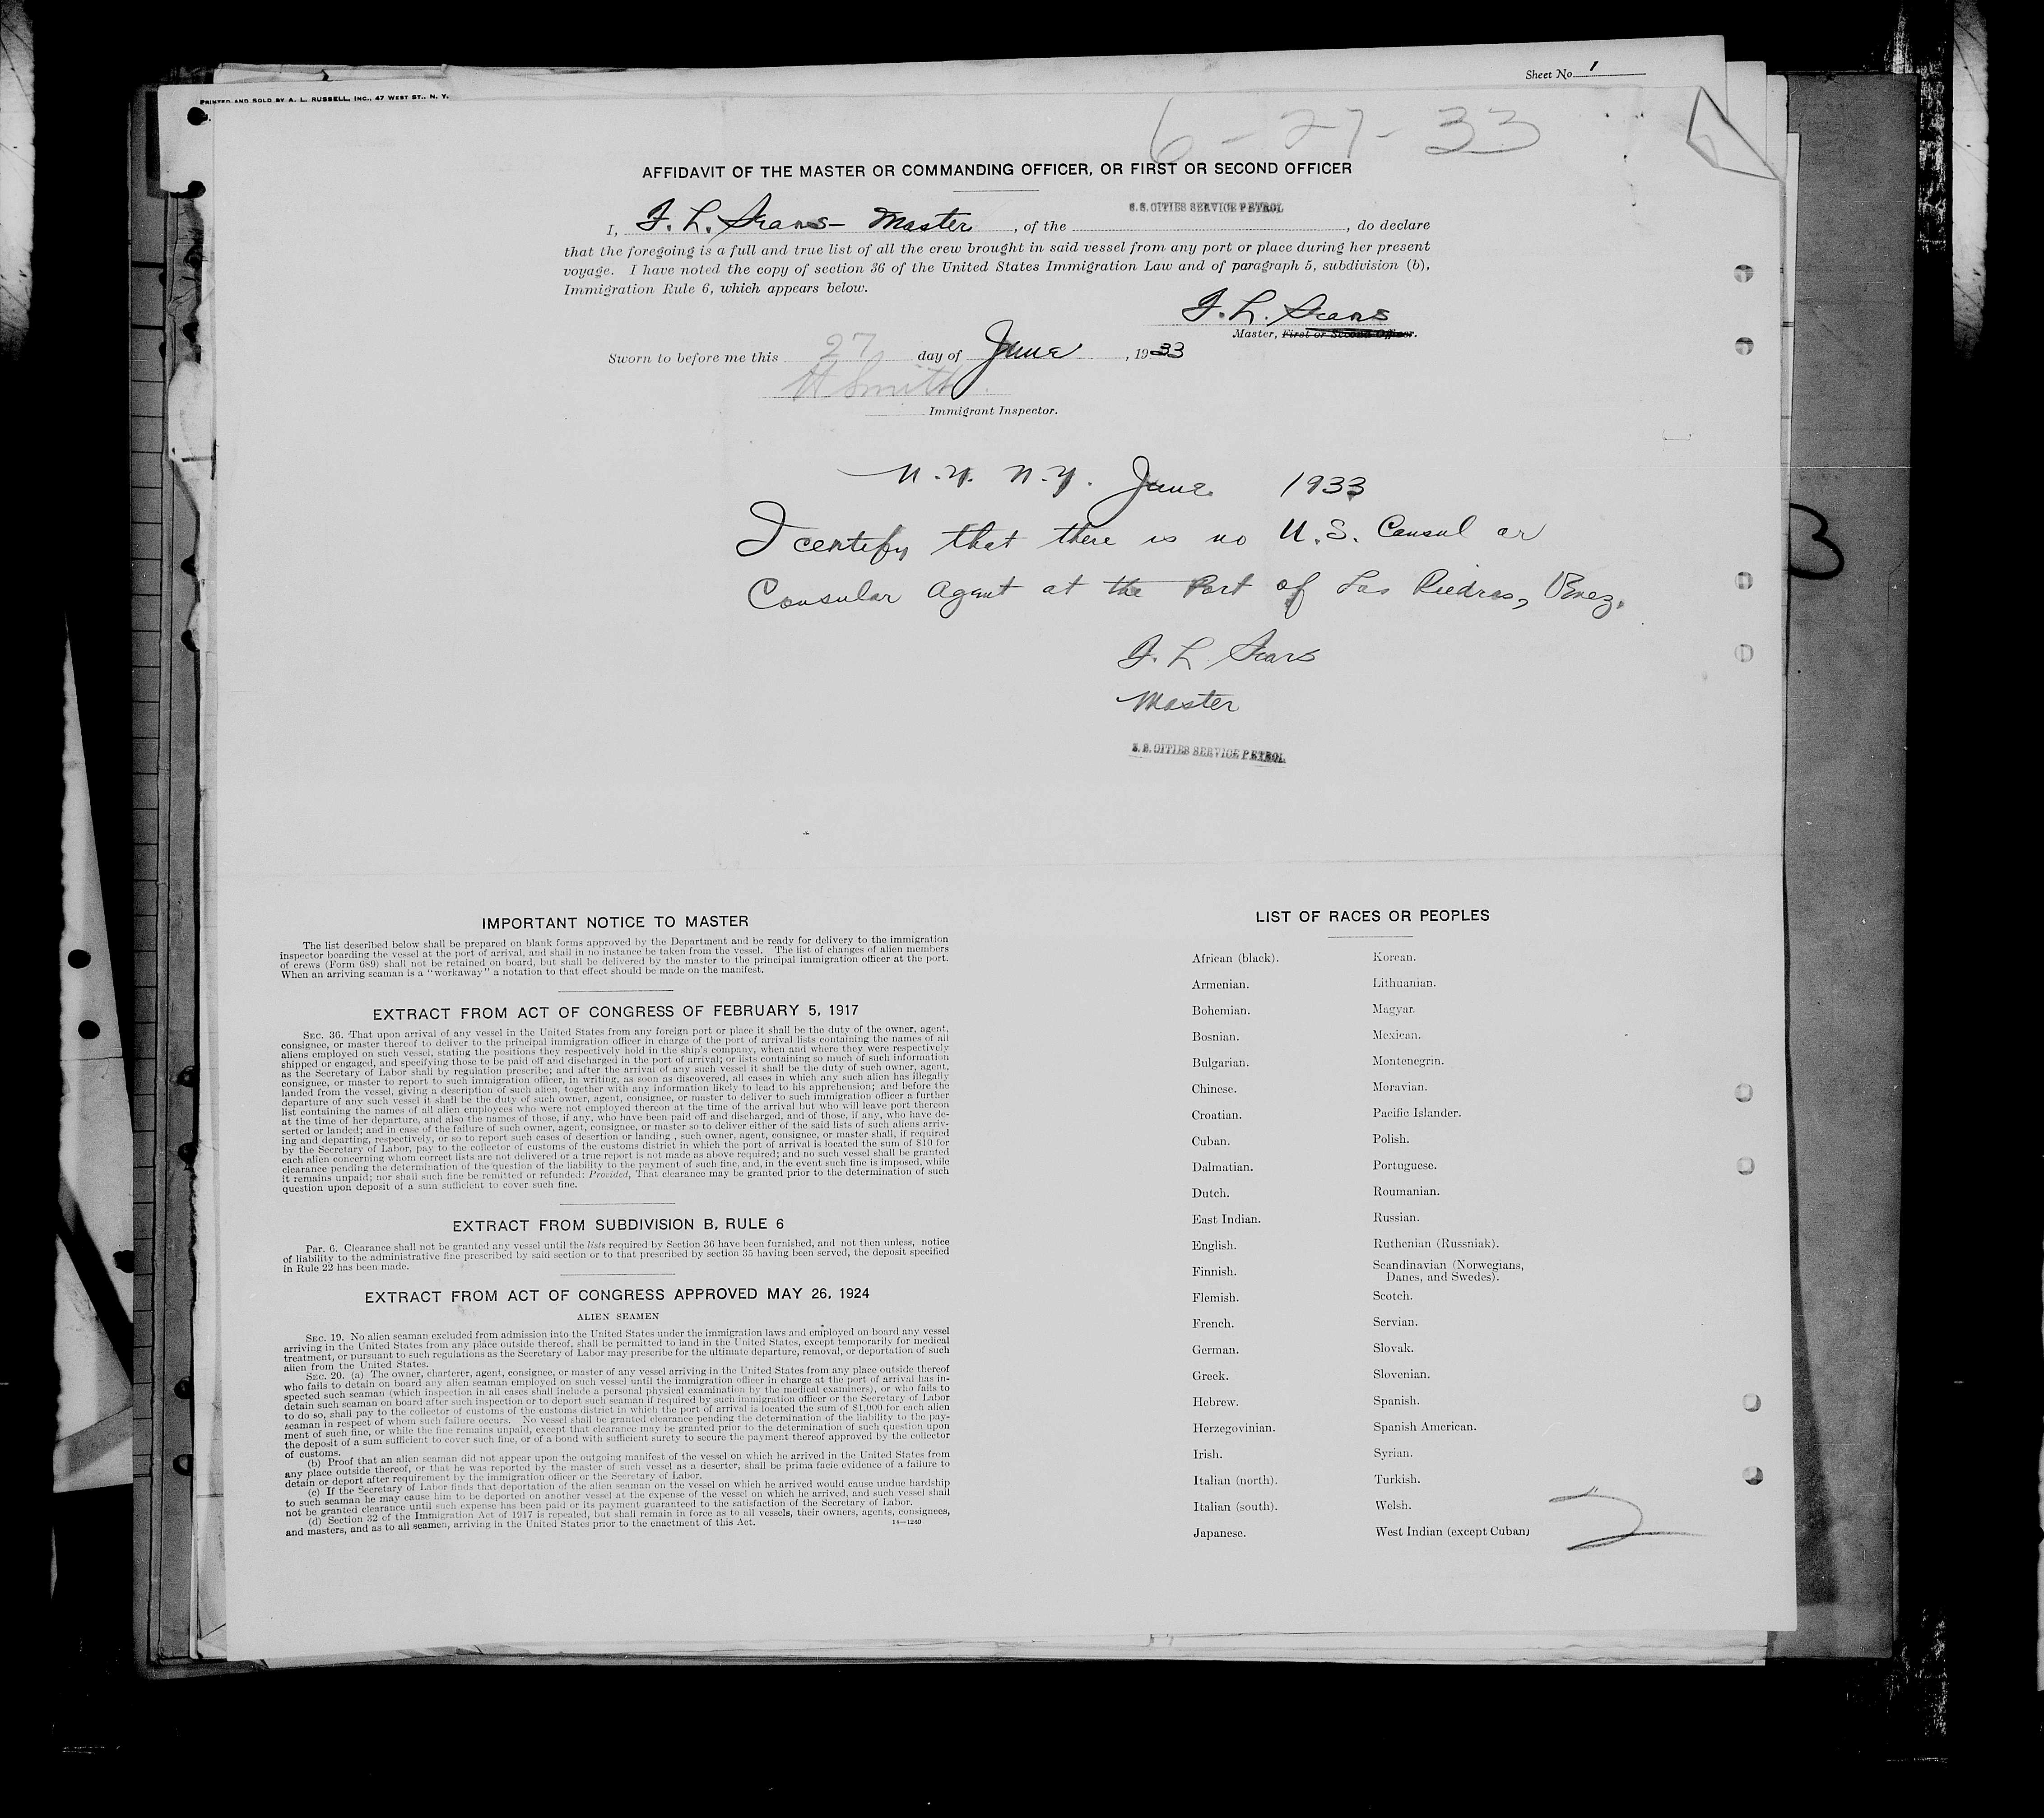 Sheet No. 1
PRINTED AND SOLD BY A. L. RUSSELL, INC., 47 WEST ST., N. Y.
6-27-33
AFFIDAVIT OF THE MASTER OR COMMANDING OFFICER, OR FIRST OR SECOND OFFICER
S. S. CITIES SERVICE PETROL
I, F. L. Sears - Master, of the , do declare
that the foregoing is a full and true list of all the crew brought in said vessel from any port or place during her present
voyage. I have noted the copy of section 36 of the United States Immigration Law and of paragraph 5, subdivision (b),
Immigration Rule 6, which appears below.
F. L. Sears
Master, First or Second Officer.
Sworn to before me this 27 day of June, 1933
H Smith
Immigrant Inspector.
N.Y. N.Y. June 1933
I certify that there is no U.S. Consul or
Consular Agent at the Port of Las Piedras, Venez.
F. L. Sears
Master
S. S. CITIES SERVICE PETROL
3
IMPORTANT NOTICE TO MASTER
The list described below shall be prepared on blank forms approved by the Department and be ready for delivery to the immigration
inspector boarding the vessel at the port of arrival, and shall in no instance be taken from the vessel. The list of changes of alien members
of crews (Form 689) shall not be retained on board, but shall be delivered by the master to the principal immigration officer at the port.
When an arriving seaman is a "workaway" a notation to that effect should be made on the manifest.
EXTRACT FROM ACT OF CONGRESS OF FEBRUARY 5, 1917
SEC. 36. That upon arrival of any vessel in the United States from any foreign port or place it shall be the duty of the owner, agent,
consignee, or master thereof to deliver to the principal immigration officer in charge of the port of arrival lists containing the names of all
aliens employed on such vessel, stating the positions they respectively hold in the ship's company, when and where they were respectively
shipped or engaged, and specifying those to be paid off and discharged in the port of arrival; or lists containing so much of such information
as the Secretary of Labor shall by regulation prescribe; and after the arrival of any such vessel it shall be the duty of such owner, agent,
consignee, or master to report to such immigration officer, in writing, as soon as discovered, all cases in which any such alien has illegally
landed from the vessel, giving a description of such alien, together with any information likely to lead to his apprehension; and before the
departure of any such vessel it shall be the duty of such owner, agent, consignee, or master to deliver to such immigration officer a further
list containing the names of all alien employees who were not employed thereon at the time of the arrival but who will leave port thereon
at the time of her departure, and also the names of those, if any, who have been paid off and discharged, and of those, if any, who have de-
serted or landed; and in case of the failure of such owner, agent, consignee, or master so to deliver either of the said lists of such aliens arriv-
ing and departing, respectively, or so to report such cases of desertion or landing, such owner, agent, consignee, or master shall, if required
by the Secretary of Labor, pay to the collector of customs of the customs district in which the port of arrival is located the sum of $10 for
each alien concerning whom correct lists are not delivered or a true report is not made as above required; and no such vessel shall be granted
clearance pending the determination of the question of the liability to the payment of such fine, and, in the event such fine is imposed, while
it remains unpaid; nor shall such fine be remitted or refunded: Provided, That clearance may be granted prior to the determination of such
question upon deposit of a sum sufficient to cover such fine.
EXTRACT FROM SUBDIVISION B, RULE 6
Par. 6. Clearance shall not be granted any vessel until the lists required by Section 36 have been furnished, and not then unless, notice
of liability to the administrative fine prescribed by said section or to that prescribed by section 35 having been served, the deposit specified
in Rule 22 has been made.
EXTRACT FROM ACT OF CONGRESS APPROVED MAY 26, 1924
ALIEN SEAMEN
SEC. 19. No alien seaman excluded from admission into the United States under the immigration laws and employed on board any vessel
arriving in the United States from any place outside thereof, shall be permitted to land in the United States, except temporarily for medical
treatment, or pursuant to such regulations as the Secretary of Labor may prescribe for the ultimate departure, removal, or deportation of such
alien from the United States.
SEC. 20. (a) The owner, charterer, agent, consignee, or master of any vessel arriving in the United States from any place outside thereof
who fails to detain on board any alien seaman employed on such vessel until the immigration officer in charge at the port of arrival has in-
spected such seaman (which inspection in all cases shall include a personal physical examination by the medical examiners), or who fails to
detain such seaman on board after such inspection or to deport such seaman if required by such immigration officer or the Secretary of Labor
to do so, shall pay to the collector of customs of the customs district in which the port of arrival is located the sum of $1,000 for each alien
seaman in respect of whom such failure occurs. No vessel shall be granted clearance pending the determination of the liability to the pay-
ment of such fine, or while the fine remains unpaid, except that clearance may be granted prior to the determination of such question upon
the deposit of a sum sufficient to cover such fine, or of a bond with sufficient surety to secure the payment thereof approved by the collector
of customs.
(b) Proof that an alien seaman did not appear upon the outgoing manifest of the vessel on which he arrived in the United States from
any place outside thereof, or that he was reported by the master of such vessel as a deserter, shall be prima facie evidence of a failure to
detain or deport after requirement by the immigration officer or the Secretary of Labor.
(c) If the Secretary of Labor finds that deportation of the alien seaman on the vessel on which he arrived would cause undue hardship
to such seaman he may cause him to be deported on another vessel at the expense of the vessel on which he arrived, and such vessel shall
not be granted clearance until such expense has been paid or its payment guaranteed to the satisfaction of the Secretary of Labor.
(d) Section 32 of the Immigration Act of 1917 is repealed, but shall remain in force as to all vessels, their owners, agents, consignees,
and masters, and as to all seamen, arriving in the United States prior to the enactment of this Act.
14—1240
LIST OF RACES OR PEOPLES
African (black).
Armenian.
Bohemian.
Bosnian.
Bulgarian.
Chinese.
Croatian.
Cuban.
Dalmatian.
Dutch.
East Indian.
English.
Finnish.
Flemish.
French.
German.
Greek.
Hebrew.
Herzegovinian.
Irish.
Italian (north).
Italian (south).
Japanese.
Korean.
Lithuanian.
Magyar.
Mexican.
Montenegrin.
Moravian.
Pacific Islander.
Polish.
Portuguese.
Roumanian.
Russian.
Ruthenian (Russniak).
Scandinavian (Norwegians,
Danes, and Swedes).
Scotch.
Servian.
Slovak.
Slovenian.
Spanish.
Spanish American.
Syrian.
Turkish.
Welsh.
West Indian (except Cuban)
2